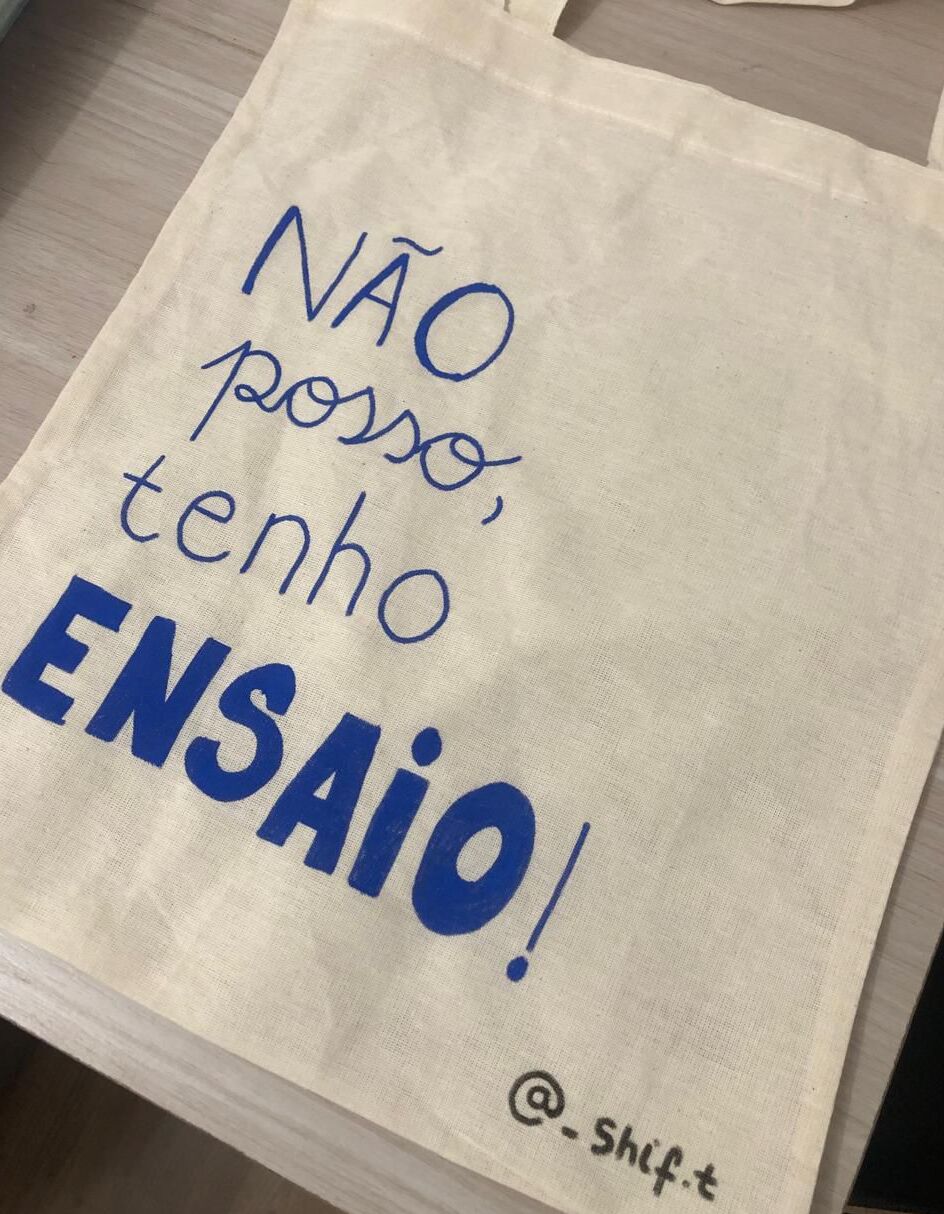 NÃO
posso,
tenho
ENSAiO!
@_shif.t